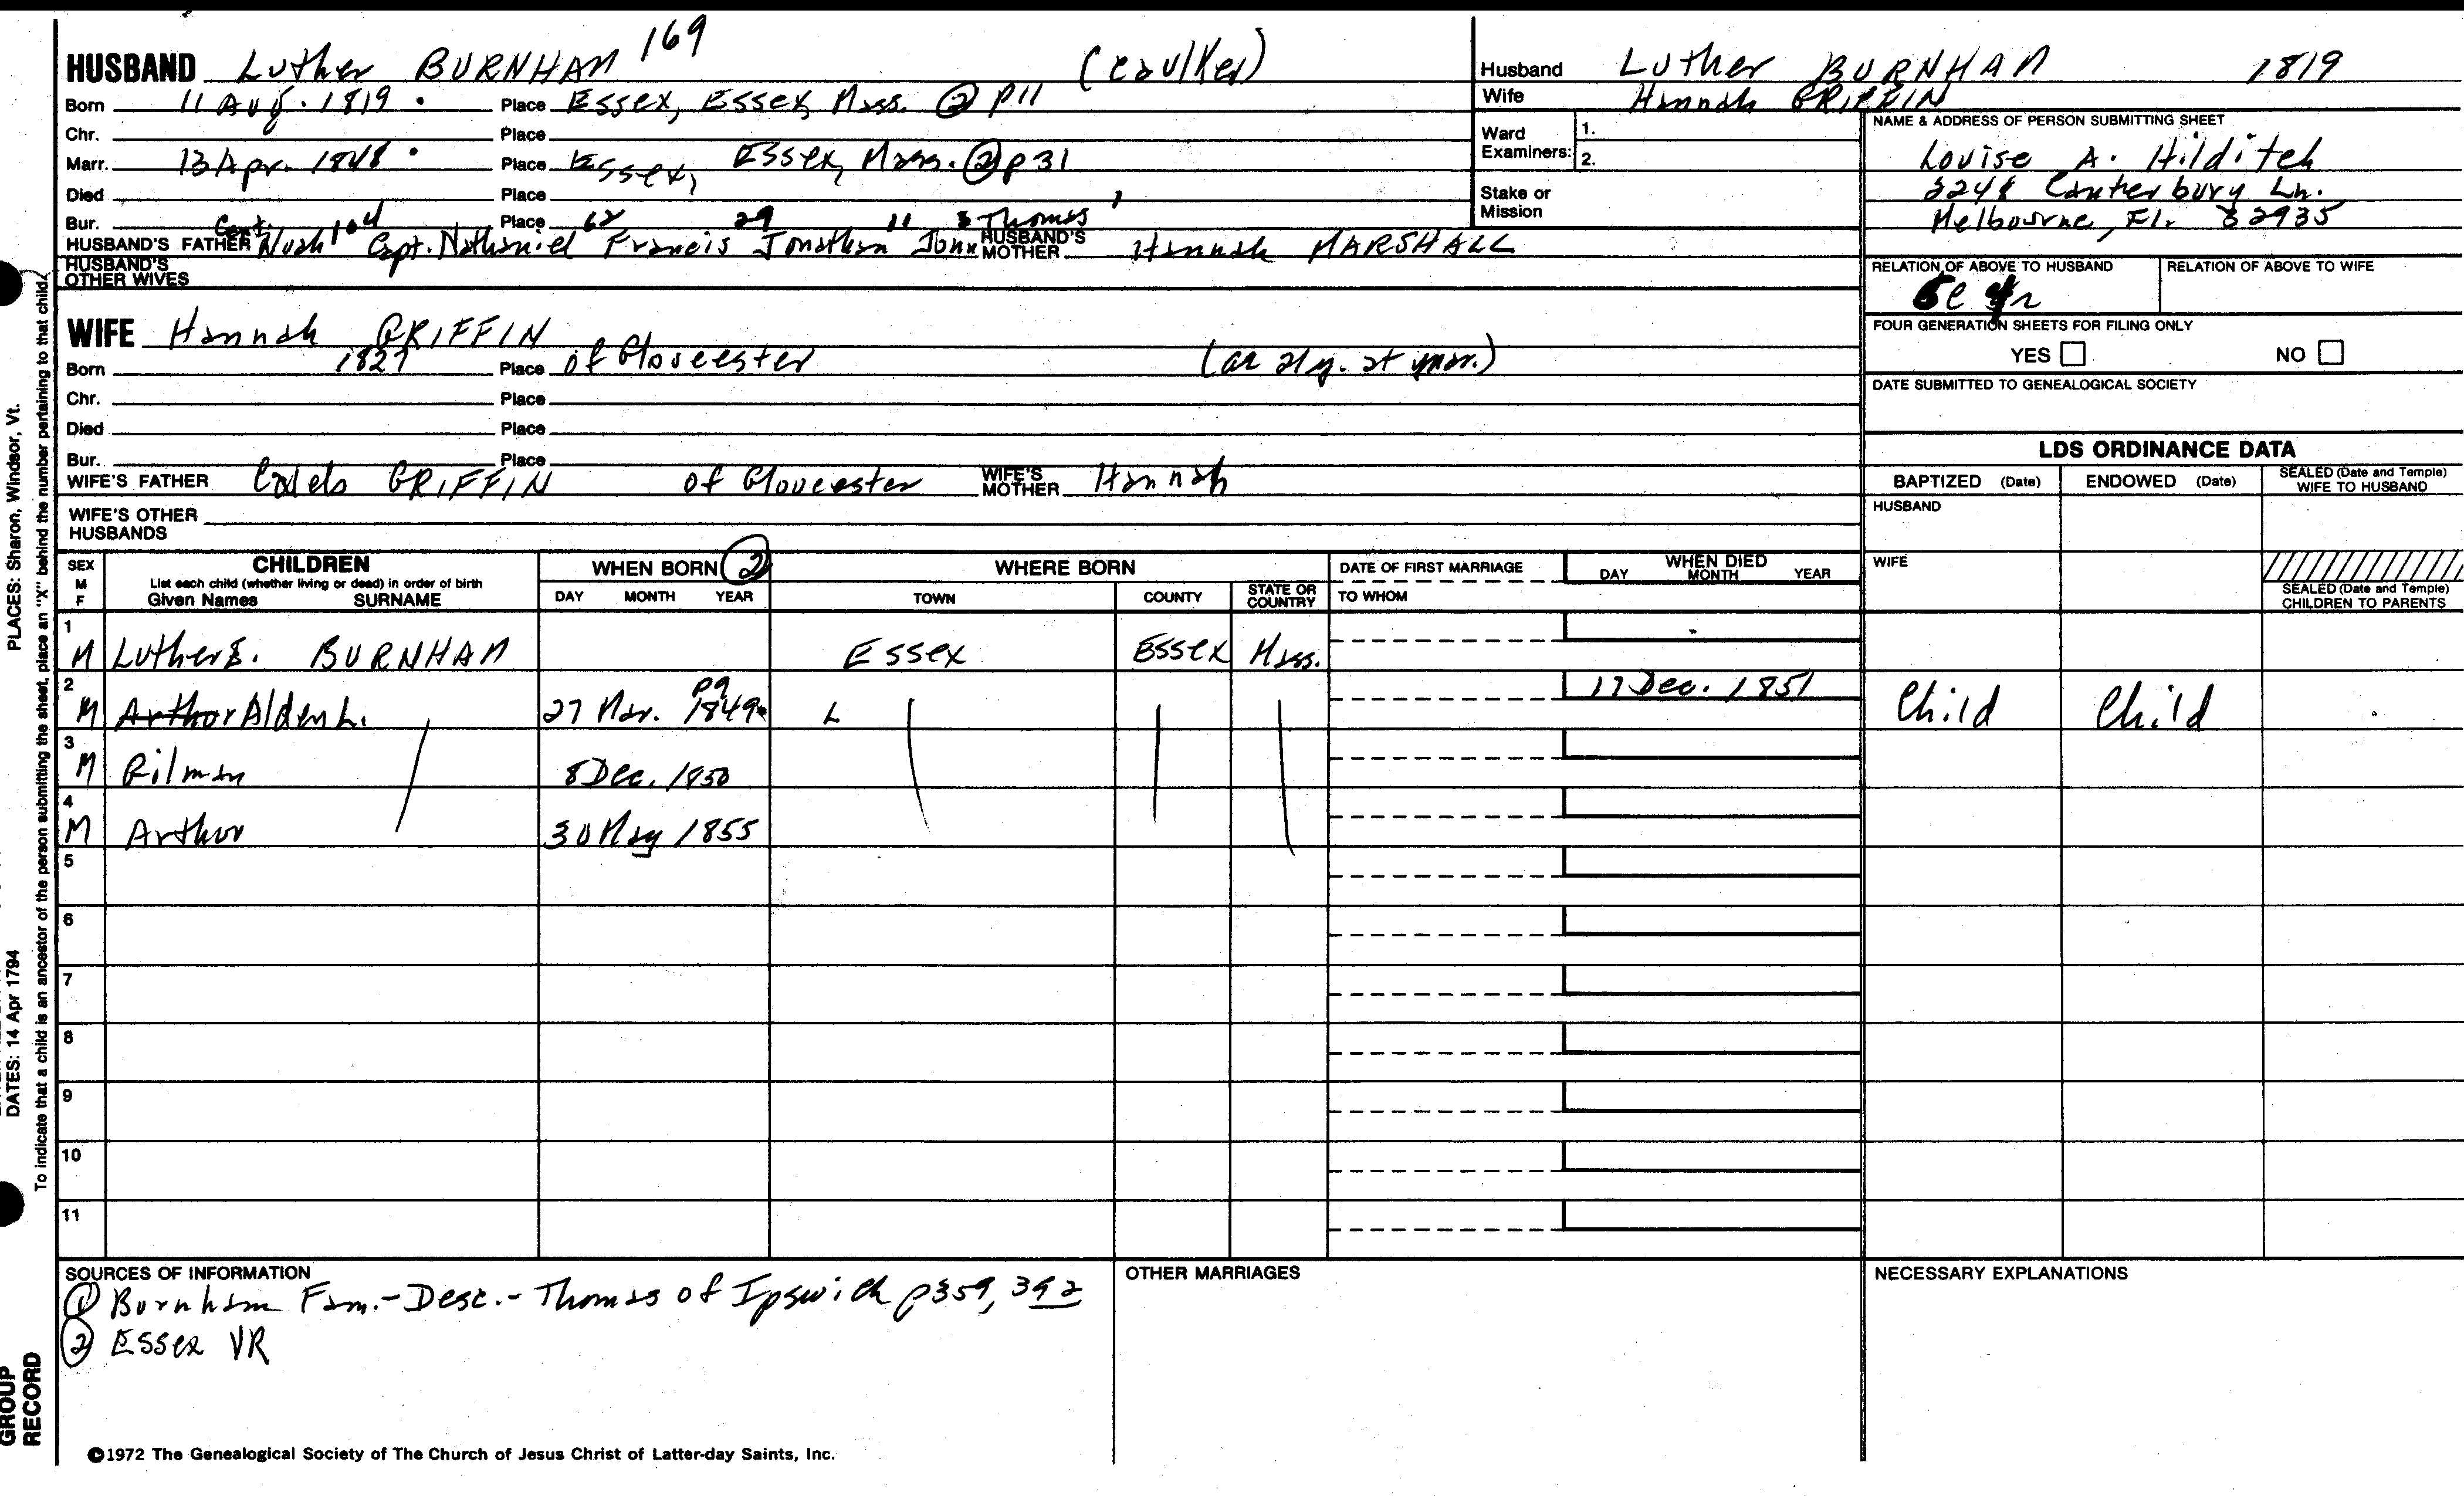 HUSBAND Luther BURNHAM 169 (caulker)
Born 11 Aug. 1819 Place Essex, Essex, Mass. ② p11
Chr. Place
Marr. 13 Apr. 1848 Place Essex, Essex, Mass. ② p31
Died Place
Bur. Place
Capt. 104 62 29 11 3 Thomas
HUSBAND'S FATHER Noah Capt. Nathaniel Francis Jonathan John HUSBAND'S MOTHER Hannah MARSHALL
HUSBAND'S OTHER WIVES
Husband Luther BURNHAM 1819
Wife Hannah GRIFFIN
Ward Examiners: 1.
2.
Stake or Mission
NAME & ADDRESS OF PERSON SUBMITTING SHEET
Louise A. Hilditch
2248 Canterbury Ln.
Melbourne, Fl. 32935
RELATION OF ABOVE TO HUSBAND RELATION OF ABOVE TO WIFE
FOUR GENERATION SHEETS FOR FILING ONLY
YES NO
DATE SUBMITTED TO GENEALOGICAL SOCIETY
WIFE Hannah GRIFFIN
Born 1827 Place of Gloucester (ae 21y. at mar.)
Chr. Place
Died Place
Bur. Place
WIFE'S FATHER Caleb GRIFFIN of Gloucester WIFE'S MOTHER Hannah
WIFE'S OTHER HUSBANDS
LDS ORDINANCE DATA
BAPTIZED (Date) ENDOWED (Date) SEALED (Date and Temple) WIFE TO HUSBAND
HUSBAND
WIFE
SEALED (Date and Temple) CHILDREN TO PARENTS
SEX M F CHILDREN WHEN BORN ② WHERE BORN DATE OF FIRST MARRIAGE WHEN DIED
List each child (whether living or dead) in order of birth
Given Names SURNAME DAY MONTH YEAR TOWN COUNTY STATE OR COUNTRY TO WHOM DAY MONTH YEAR
1 M Luther E. BURNHAM Essex Essex Mass.
2 M Arthur Alden L. 27 Mar. 1849 p9 17 Dec. 1851 Child Child
3 M Gilman 8 Dec. 1850
4 M Arthur 30 May 1855
5
6
7
8
9
10
11
SOURCES OF INFORMATION
① Burnham Fam.-Desc.- Thomas of Ipswich p359, 392
② Essex VR
OTHER MARRIAGES
NECESSARY EXPLANATIONS
©1972 The Genealogical Society of The Church of Jesus Christ of Latter-day Saints, Inc.
PLACES: Sharon, Windsor, Vt.
DATES: 14 Apr 1794
To indicate that a child is an ancestor of the person submitting the sheet, place an "X" behind the number pertaining to that child.
GROUP
RECORD